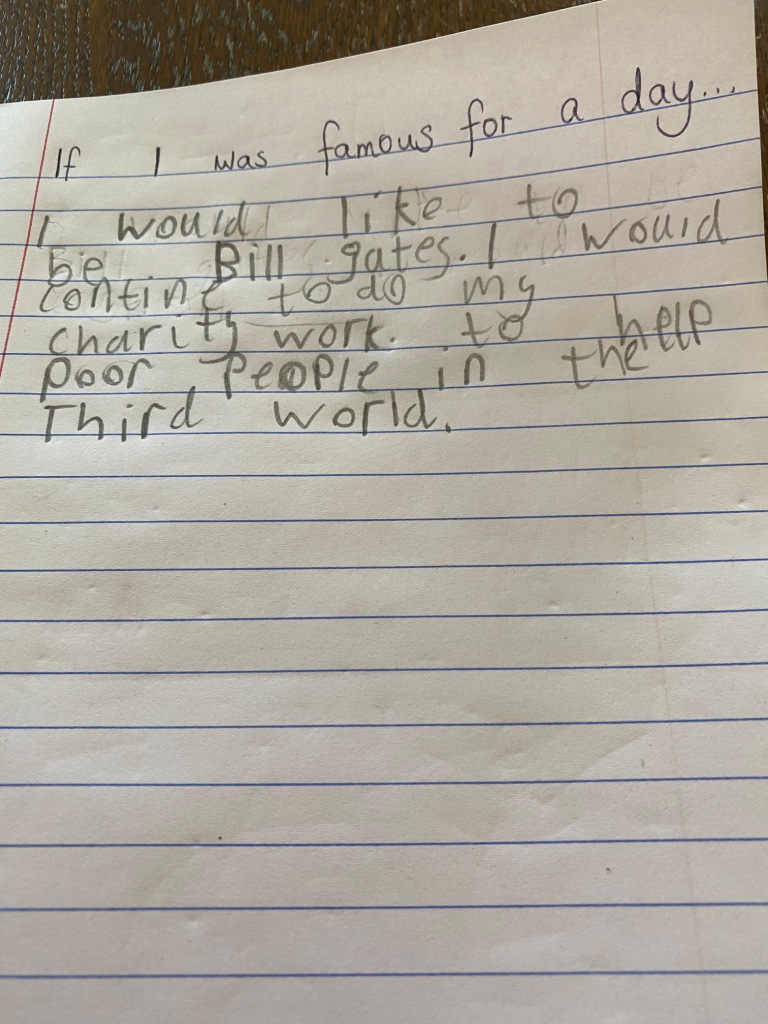 If I was famous for a day...
I would like to
be Bill gates. I would
contine to do my
charity work. to help
poor people in the
Third world.